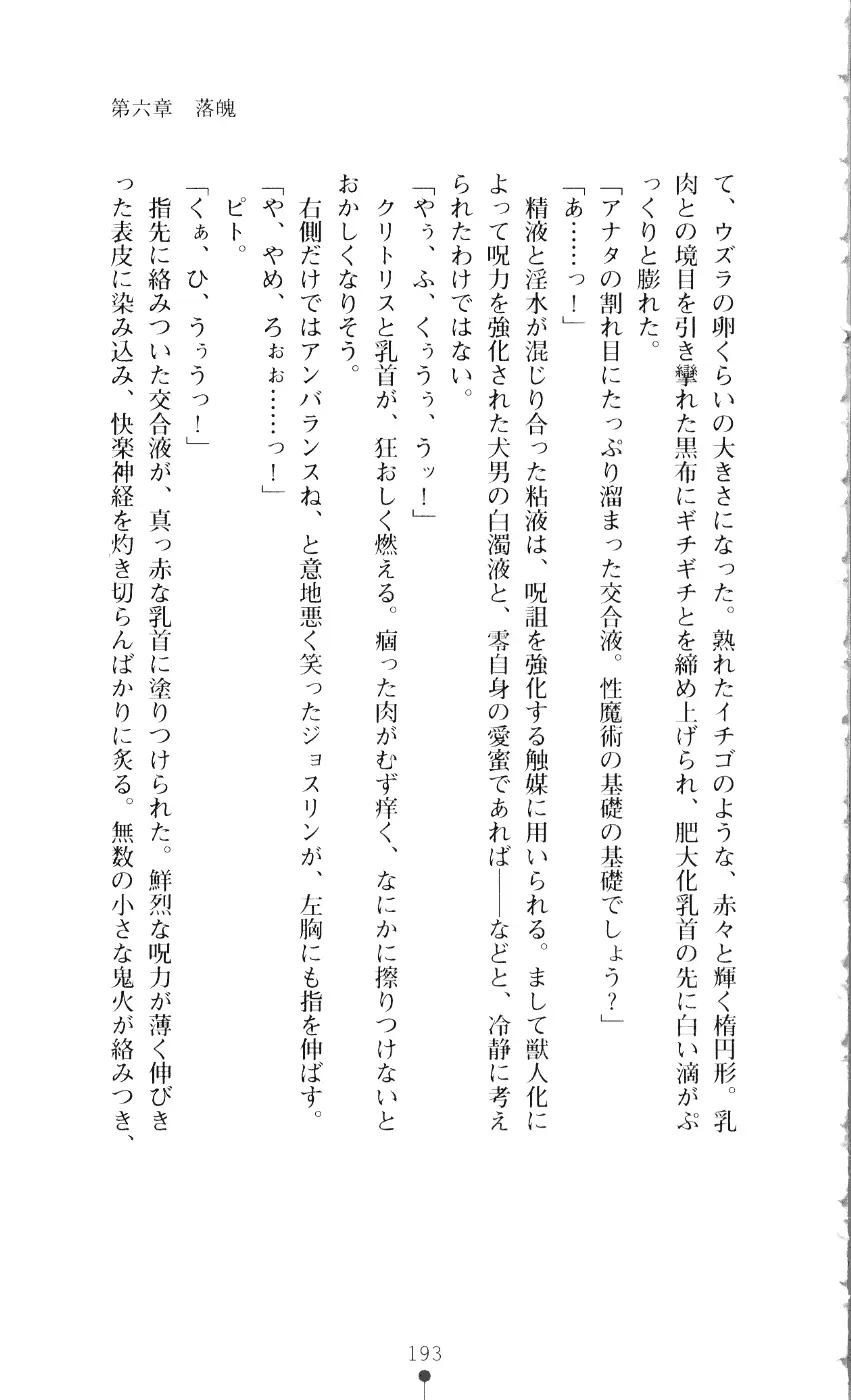 第六章　落魄
て、ウズラの卵くらいの大きさになった。熟れたイチゴのような、赤々と輝く楕円形。乳
肉との境目を引き攣れた黒布にギチギチとを締め上げられ、肥大化乳首の先に白い滴がぷ
っくりと膨れた。
「アナタの割れ目にたっぷり溜まった交合液。性魔術の基礎の基礎でしょう？」
「あ……っ！」
精液と淫水が混じり合った粘液は、呪詛を強化する触媒に用いられる。まして獣人化に
よって呪力を強化された犬男の白濁液と、零自身の愛蜜であれば――などと、冷静に考え
られたわけではない。
「やぅ、ふ、くぅうぅ、うッ！」
クリトリスと乳首が、狂おしく燃える。痼った肉がむず痒く、なにかに擦りつけないと
おかしくなりそう。
右側だけではアンバランスね、と意地悪く笑ったジョスリンが、左胸にも指を伸ばす。
「や、やめ、ろぉぉ……っ！」
ピト。
「くぁ、ひ、うぅうっ！」
指先に絡みついた交合液が、真っ赤な乳首に塗りつけられた。鮮烈な呪力が薄く伸びき
った表皮に染み込み、快楽神経を灼き切らんばかりに炙る。無数の小さな鬼火が絡みつき、
193